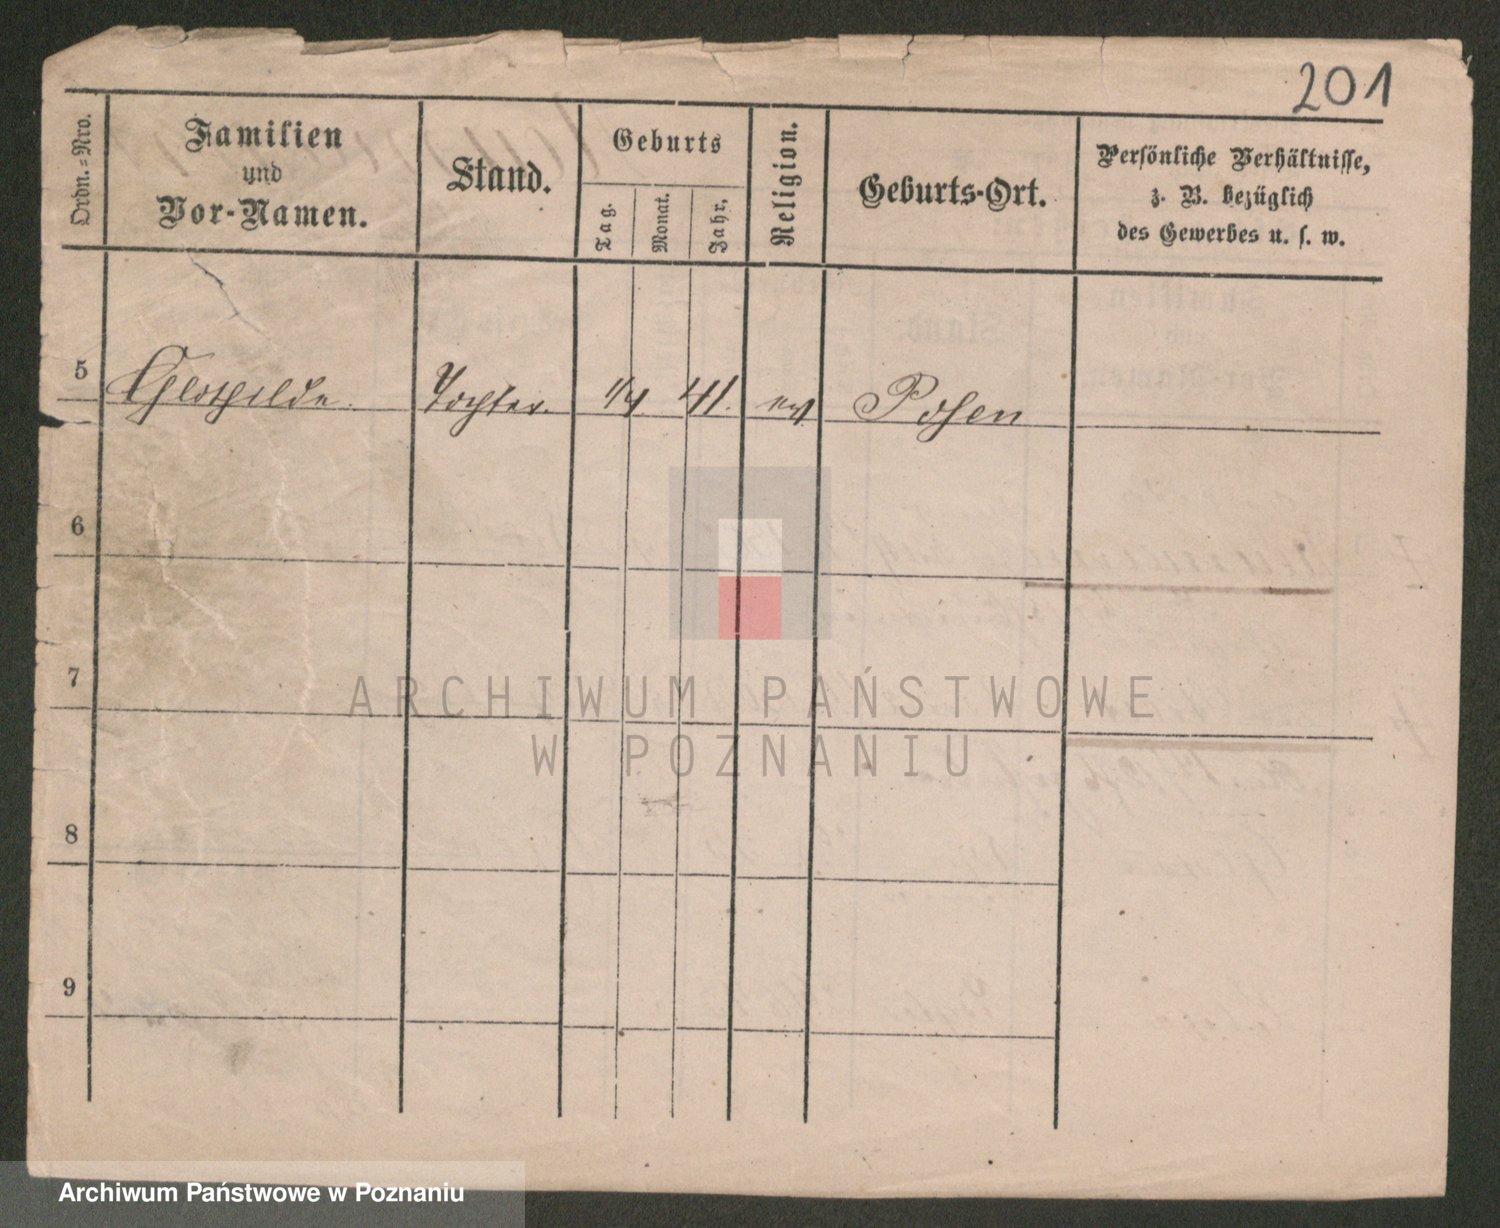 201
Ordn.=Nro.
Familien
und
Vor-Namen.
Stand.
Geburts
Tag.
Monat.
Jahr.
Religion.
Geburts-Ort.
Persönliche Verhältnisse,
z. B. bezüglich
des Gewerbes u. s. w.
5 Chlothilde. Tochter. 41. ev Posen
6
7
8
9
ARCHIWUM PAŃSTWOWE
W POZNANIU
Archiwum Państwowe w Poznaniu